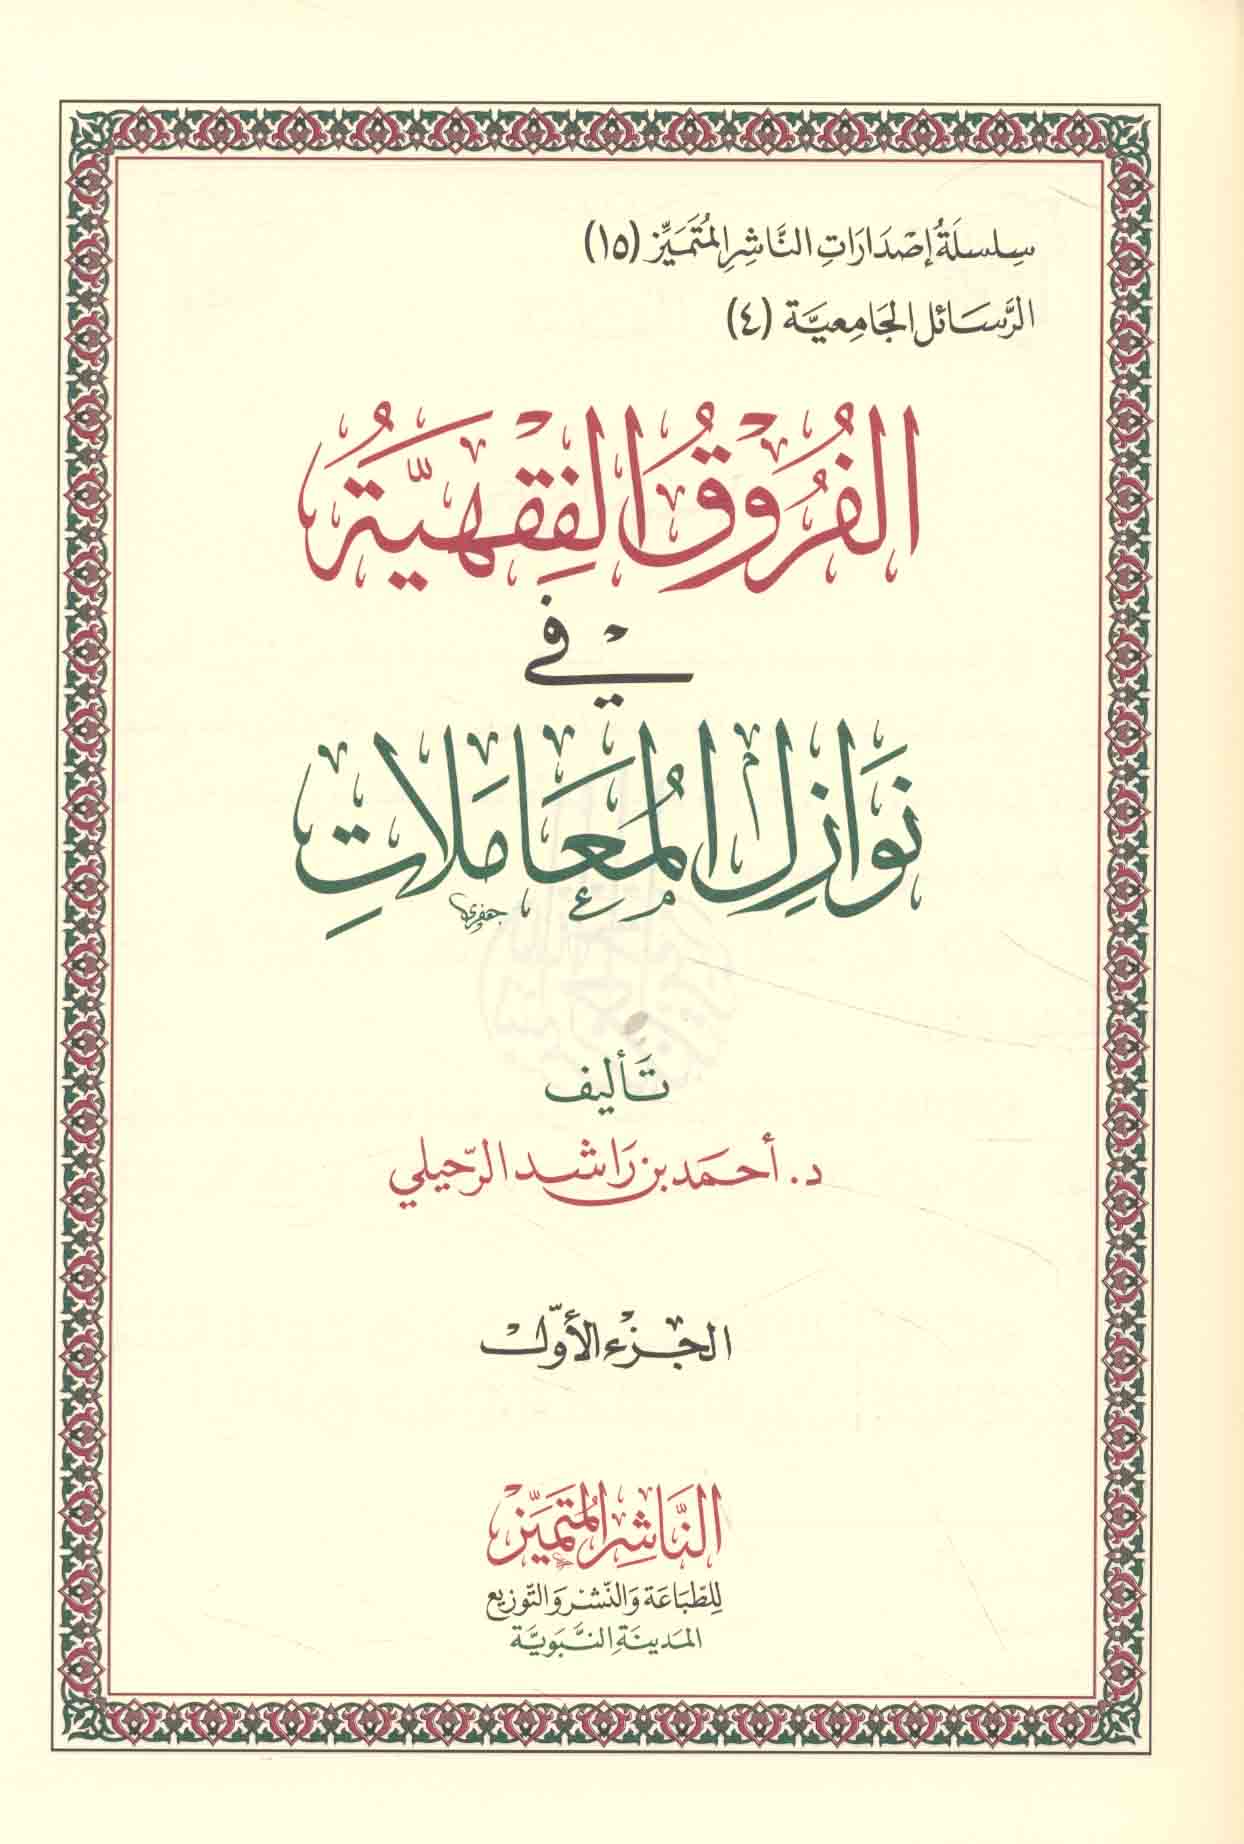 سِلسِلَةُ إصْدَارَاتِ النَّاشِرِ المُتَمَيِّز (١٥)
الرَّسَائل الجَامِعِيَّة (٤)
الفُرُوقُ الفِقْهِيَّةُ
فِي
نَوَازِلِ المُعَامَلَاتِ
تَأليف
د. أحمَد بن رَاشد الرّحيلي
الجزء الأوّل
النَّاشِر المُتَمَيِّز
لِلطِّبَاعَة وَالنّشْر وَالتّوزيع
المَدِينَة النَّبَوِيَّة